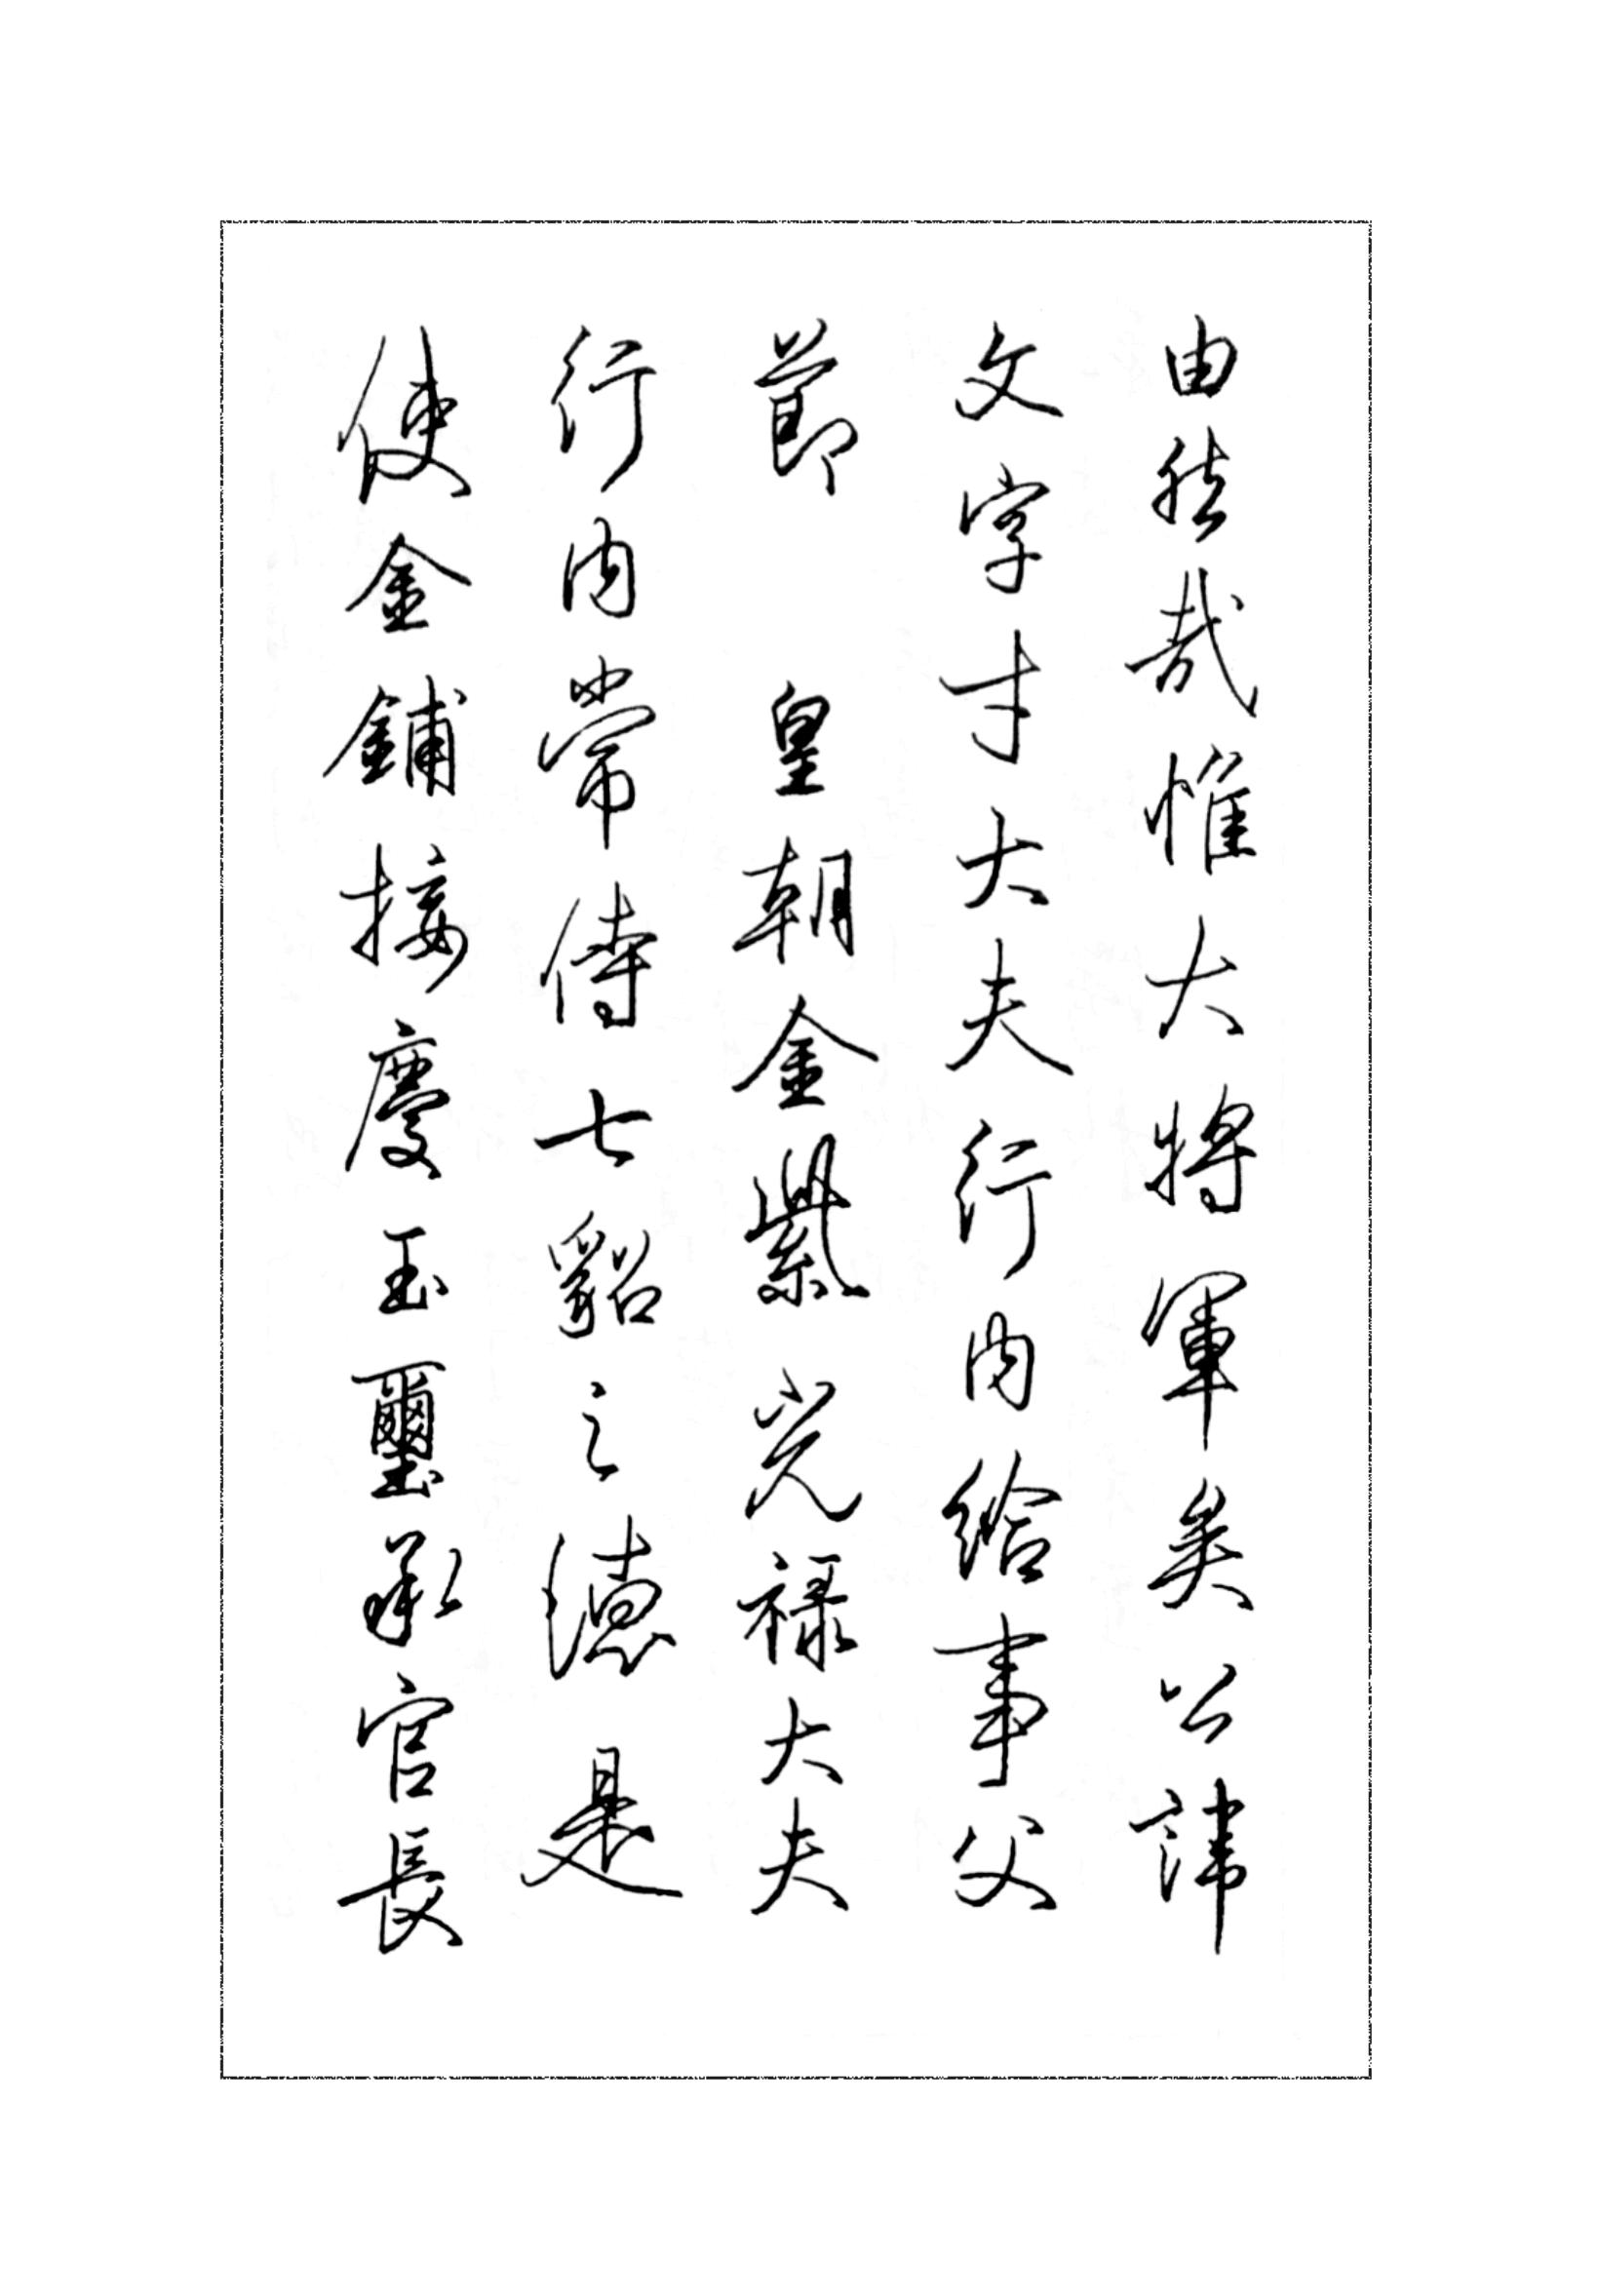 由然哉惟大將軍矣公諱
文字才大夫行内給事父
節 皇朝金紫光禄大夫
行内常侍七貂之德是
使金鋪接慶玉璽承官長